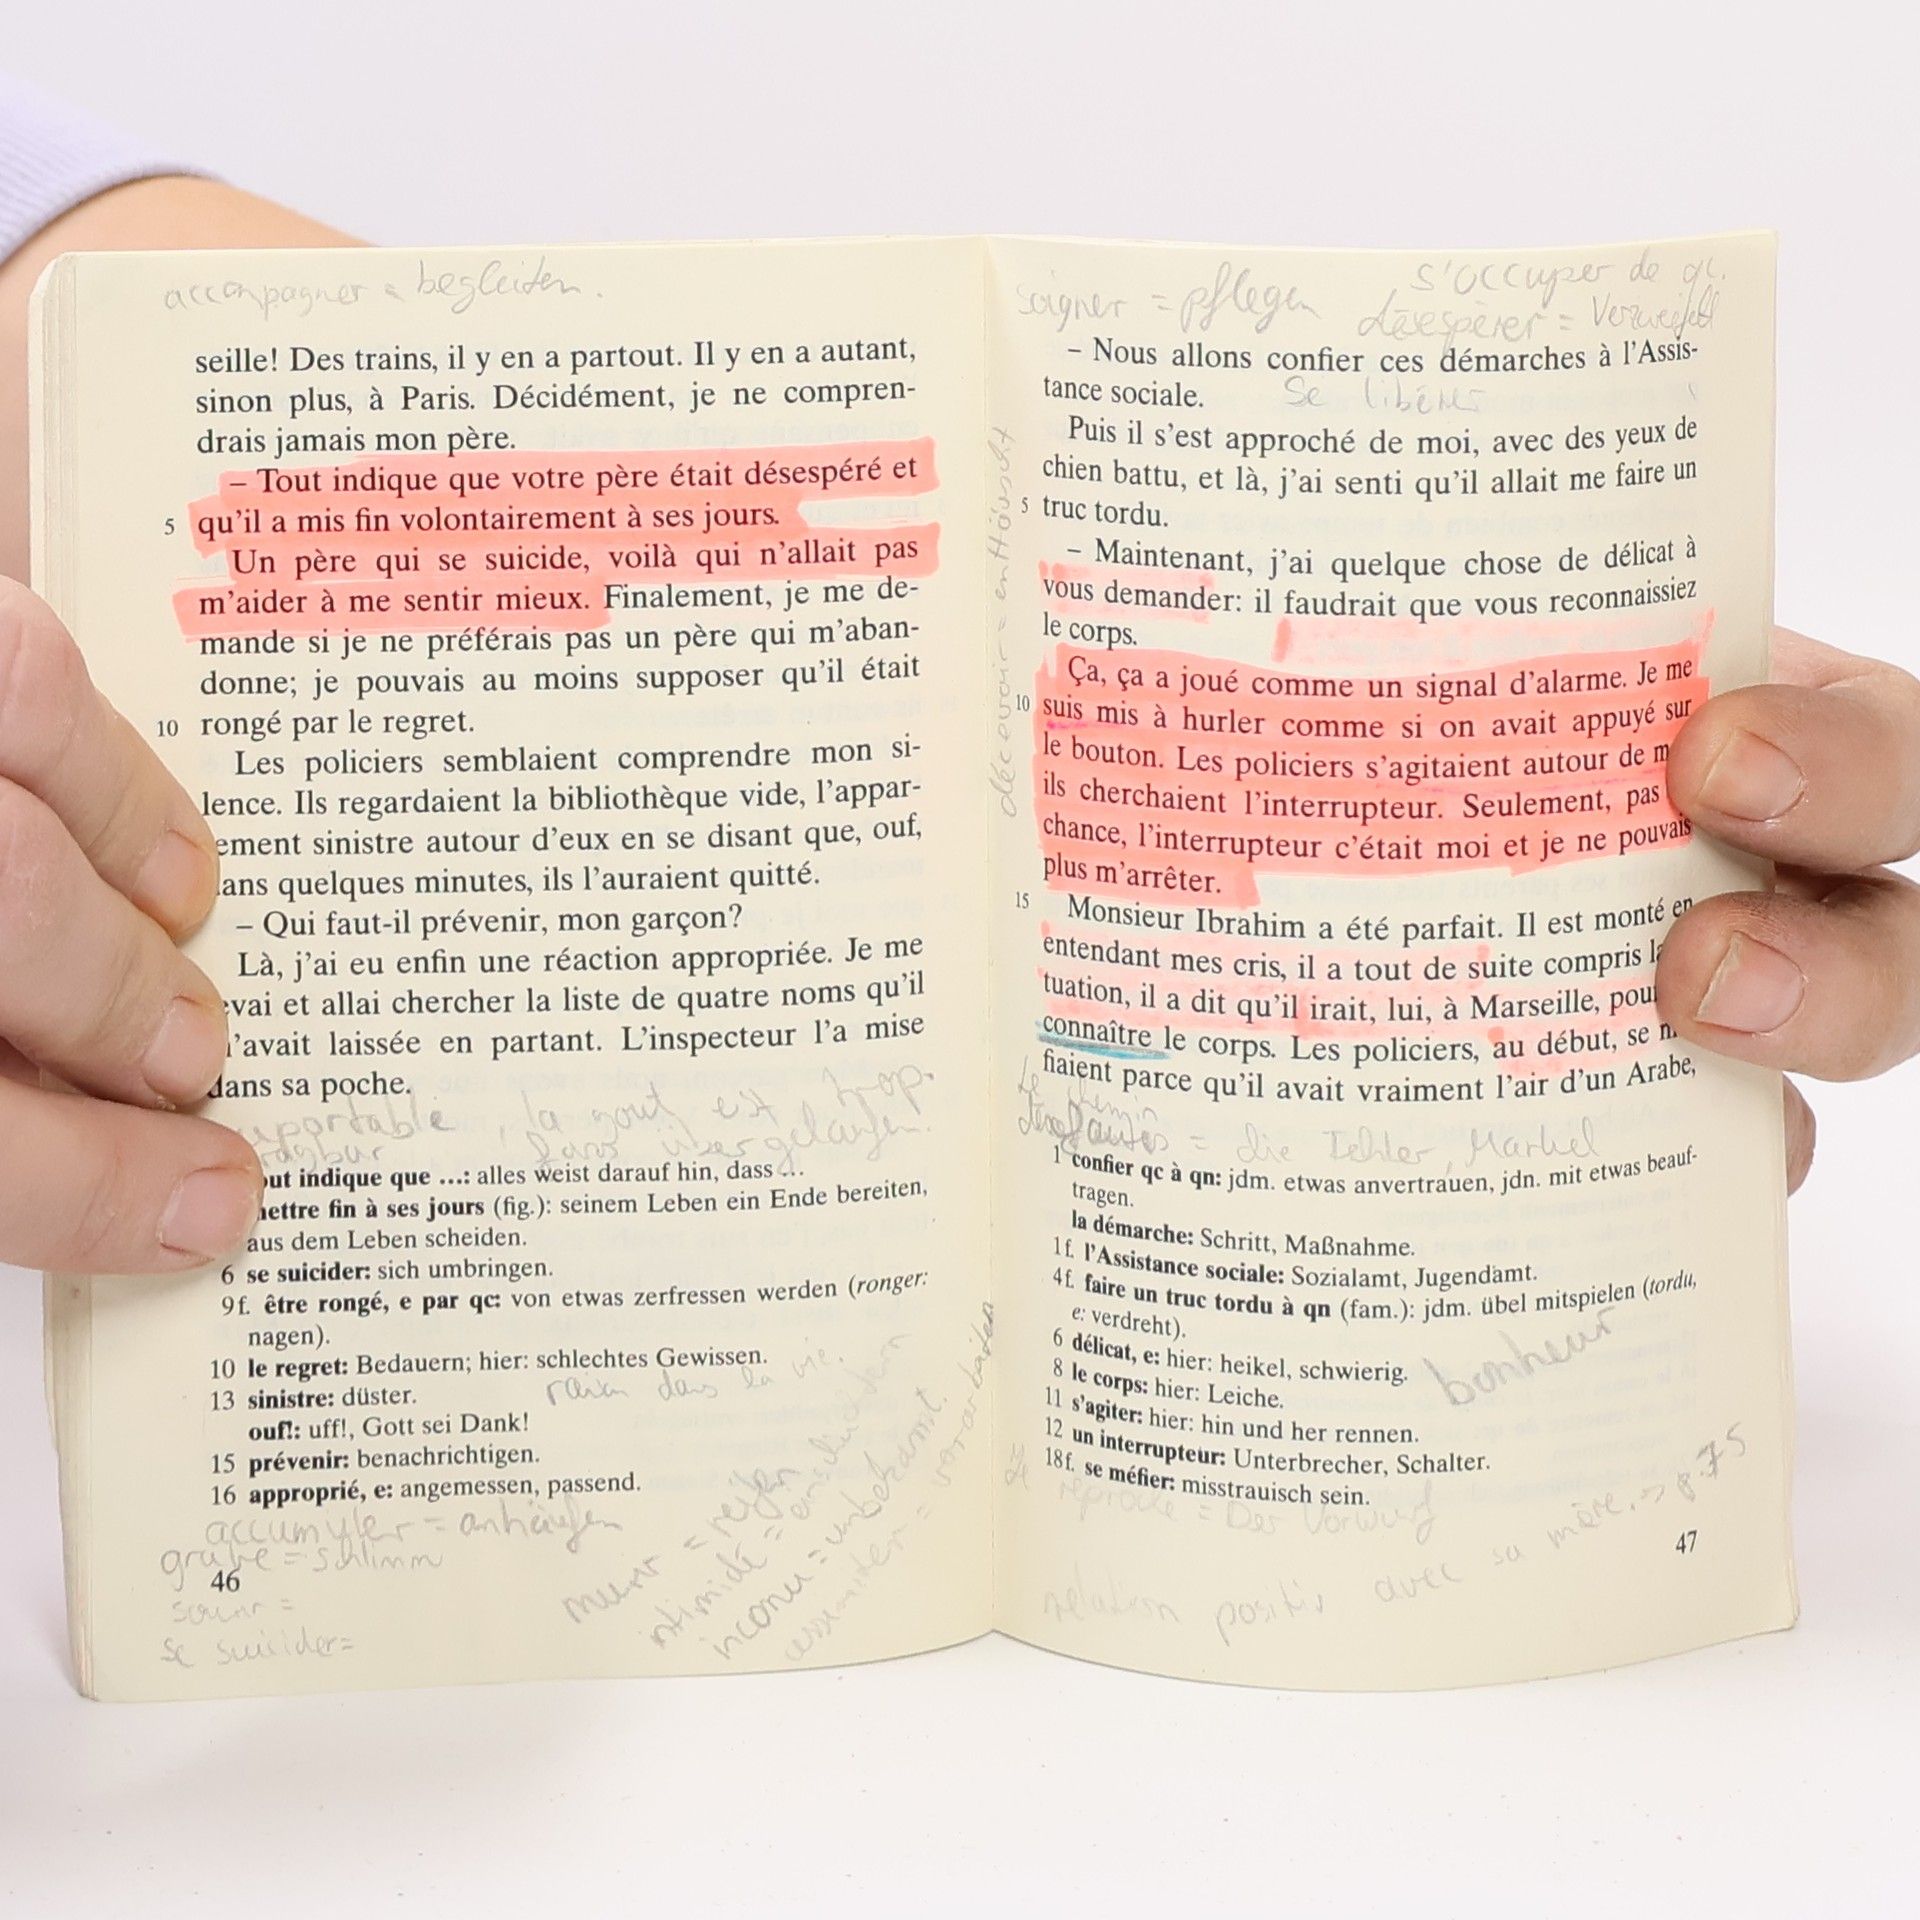 accompagner = begleiten.
seille! Des trains, il y en a partout. Il y en a autant,
sinon plus, à Paris. Décidément, je ne compren-
drais jamais mon père.
– Tout indique que votre père était désespéré et
5 qu'il a mis fin volontairement à ses jours.
Un père qui se suicide, voilà qui n'allait pas
m'aider à me sentir mieux. Finalement, je me de-
mande si je ne préférais pas un père qui m'aban-
donne; je pouvais au moins supposer qu'il était
10 rongé par le regret.
Les policiers semblaient comprendre mon si-
lence. Ils regardaient la bibliothèque vide, l'appar-
ement sinistre autour d'eux en se disant que, ouf,
ans quelques minutes, ils l'auraient quitté.
– Qui faut-il prévenir, mon garçon?
Là, j'ai eu enfin une réaction appropriée. Je me
evai et allai chercher la liste de quatre noms qu'il
'avait laissée en partant. L'inspecteur l'a mise
dans sa poche.
la gout est trop.
out indique que ...: alles weist darauf hin, dass ...
mettre fin à ses jours (fig.): seinem Leben ein Ende bereiten,
aus dem Leben scheiden.
6 se suicider: sich umbringen.
9f. être rongé, e par qc: von etwas zerfressen werden (ronger:
nagen).
10 le regret: Bedauern; hier: schlechtes Gewissen.
13 sinistre: düster.
dans la vie.
ouf!: uff!, Gott sei Dank!
15 prévenir: benachrichtigen.
16 approprié, e: angemessen, passend.
accumuler = anhäufen
grave = schlimm
46
se suicider=
soigner = pflegen
s'occuper de qc.
désespèrer = Verzweifelt
– Nous allons confier ces démarches à l'Assis-
tance sociale.
Se libérer
Puis il s'est approché de moi, avec des yeux de
chien battu, et là, j'ai senti qu'il allait me faire un
5 truc tordu.
– Maintenant, j'ai quelque chose de délicat à
vous demander: il faudrait que vous reconnaissiez
le corps.
Ça, ça a joué comme un signal d'alarme. Je me
10 suis mis à hurler comme si on avait appuyé sur
le bouton. Les policiers s'agitaient autour de m
ils cherchaient l'interrupteur. Seulement, pas
chance, l'interrupteur c'était moi et je ne pouvais
plus m'arrêter.
15 Monsieur Ibrahim a été parfait. Il est monté en
entendant mes cris, il a tout de suite compris la
tuation, il a dit qu'il irait, lui, à Marseille, pour
connaître le corps. Les policiers, au début, se m
fiaient parce qu'il avait vraiment l'air d'un Arabe,
= die Fehler, Markel
1 confier qc à qn: jdm. etwas anvertrauen, jdn. mit etwas beauf-
tragen.
la démarche: Schritt, Maßnahme.
1f. l'Assistance sociale: Sozialamt, Jugendamt.
4f. faire un truc tordu à qn (fam.): jdm. übel mitspielen (tordu,
e: verdreht).
6 délicat, e: hier: heikel, schwierig.
bonheur
8 le corps: hier: Leiche.
11 s'agiter: hier: hin und her rennen.
12 un interrupteur: Unterbrecher, Schalter.
18f. se méfier: misstrauisch sein.
= Der Vorwurf
47
relation positiv avec sa mère.